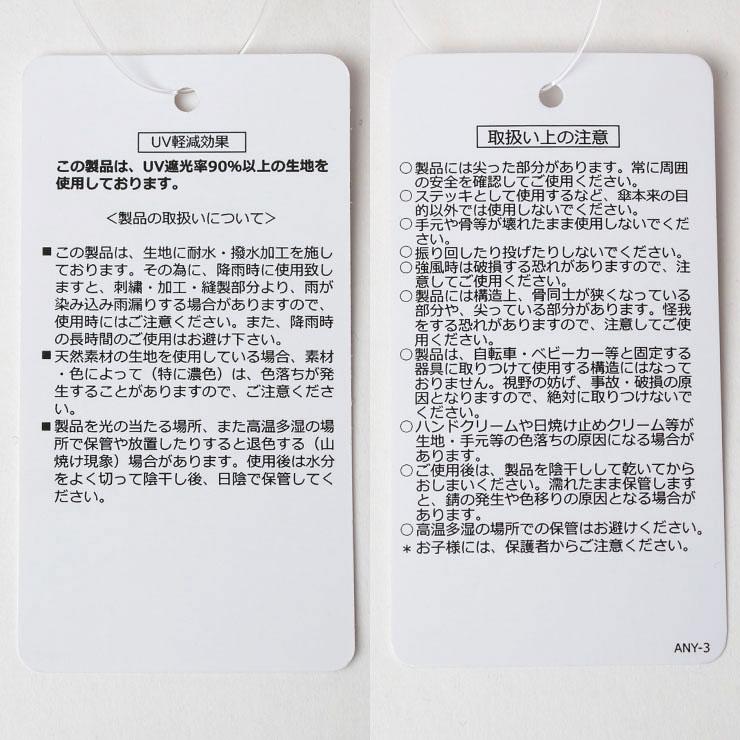 UV軽減効果
この製品は、UV遮光率90%以上の生地を
使用しております。
＜製品の取扱いについて＞
■この製品は、生地に耐水・撥水加工を施し
ております。その為に、降雨時に使用致し
ますと、刺繍・加工・縫製部分より、雨が
染み込み雨漏りする場合がありますので、
使用時にはご注意ください。また、降雨時
の長時間のご使用はお避け下さい。
■天然素材の生地を使用している場合、素材
・色によって（特に濃色）は、色落ちが発
生することがありますので、ご注意くださ
い。
■製品を光の当たる場所、また高温多湿の場
所で保管や放置したりすると退色する（山
焼け現象）場合があります。使用後は水分
をよく切って陰干し後、日陰で保管してく
ださい。
取扱い上の注意
○製品には尖った部分があります。常に周囲
の安全を確認してご使用ください。
○ステッキとして使用するなど、傘本来の目
的以外では使用しないでください。
○手元や骨等が壊れたまま使用しないでくだ
さい。
○振り回したり投げたりしないでください。
○強風時は破損する恐れがありますので、注
意してご使用ください。
○製品には構造上、骨同士が狭くなっている
部分や、尖っている部分があります。怪我
をする恐れがありますので、注意してご使
用ください。
○製品は、自転車・ベビーカー等と固定する
器具に取りつけて使用する構造にはなって
おりません。視野の妨げ、事故・破損の原
因となりますので、絶対に取りつけないで
ください。
○ハンドクリームや日焼け止めクリーム等が
生地・手元等の色落ちの原因になる場合が
あります。
○ご使用後は、製品を陰干しして乾いてから
おしまいください。濡れたまま保管します
と、錆の発生や色移りの原因となる場合が
あります。
○高温多湿の場所での保管はお避けください。
＊お子様には、保護者からご注意ください。
ANY-3